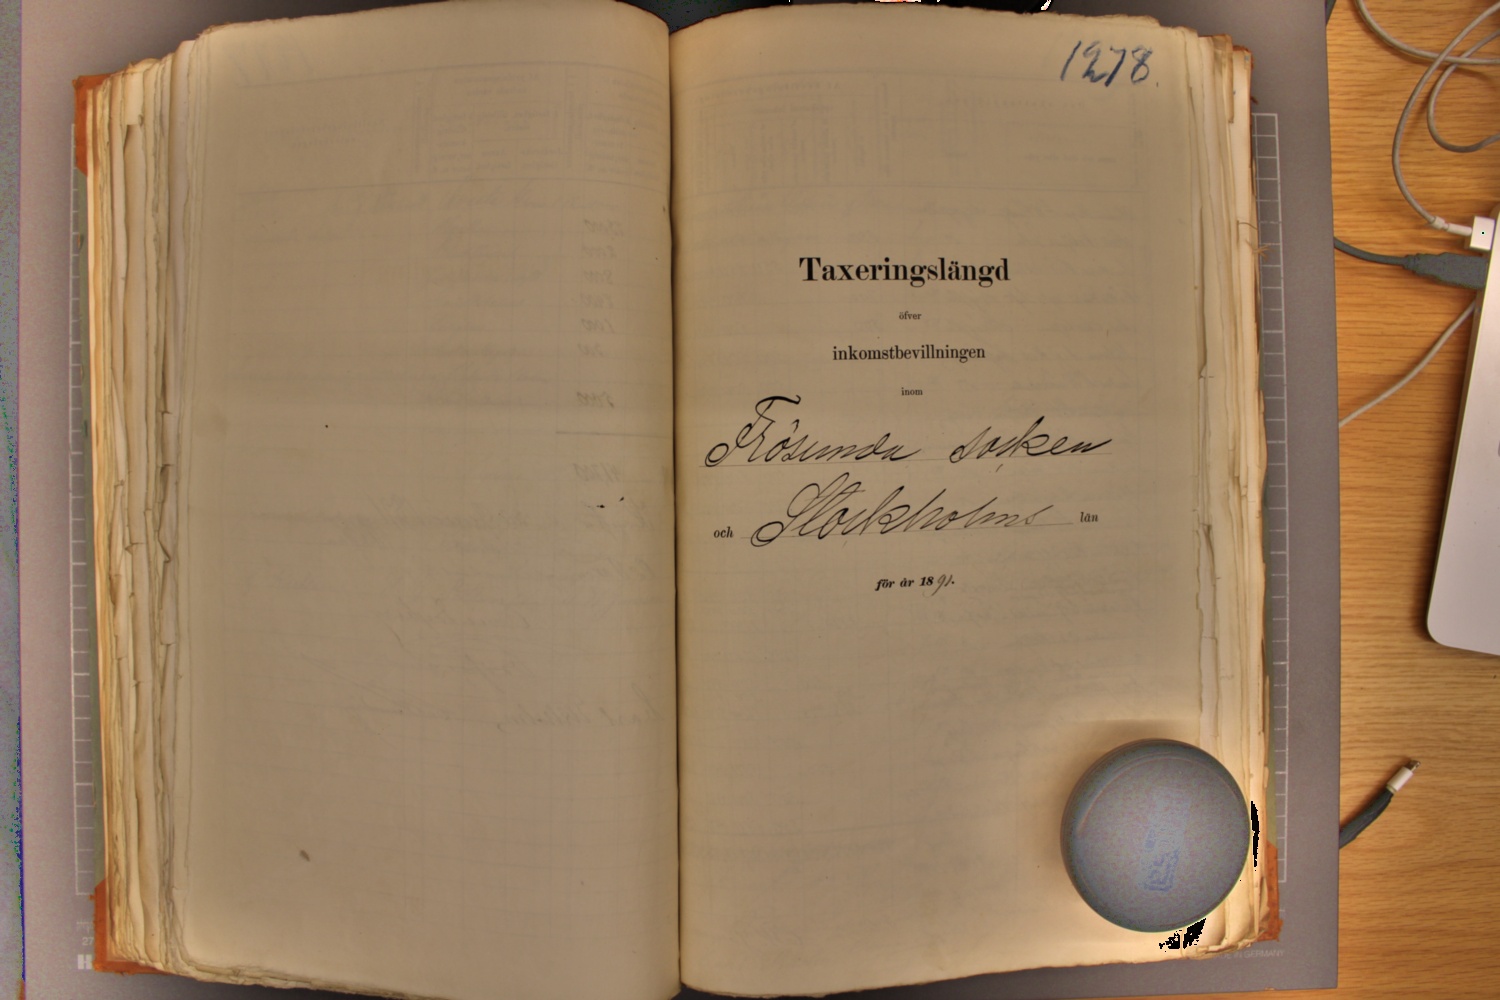 1278.
Taxeringslängd
öfver
inkomstbevillningen
inom
Frösunda socken
och Stockholms län
för år 1891.